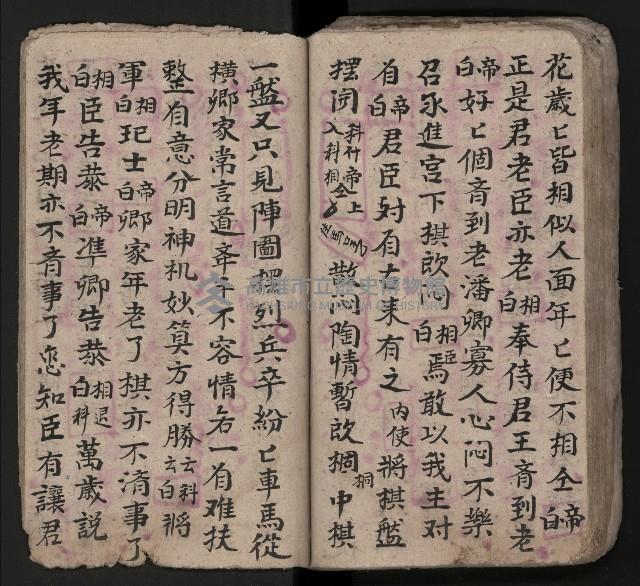 花歲匕皆相似人面年匕便不相仝帝白
正是君老臣亦老相白奉侍君王斉到老
帝白好匕個斉到老潘卿寡人心悶不樂
召永進宮下棋飲悶相白臣焉敢以我主对
有帝白君臣对有古來有之内使將棋盤
摆闭科介帝上入科相仝散悶陶情暫飲捆桐中棋
一盤又只見陣圖摆烈兵卒紛匕車馬從
横鄉家常言道弃子不容情爾一有难扶
整有意分明神机妙算方得勝科云白將
軍相白玘士帝白卿家年老了棋亦不済事了
相白臣告恭帝白準卿告恭相退白科萬歲説
我年老期亦不音事了恋知臣有讓君
高雄市立歷史博物館
KAOHSIUNG MUSEUM OF HISTORY